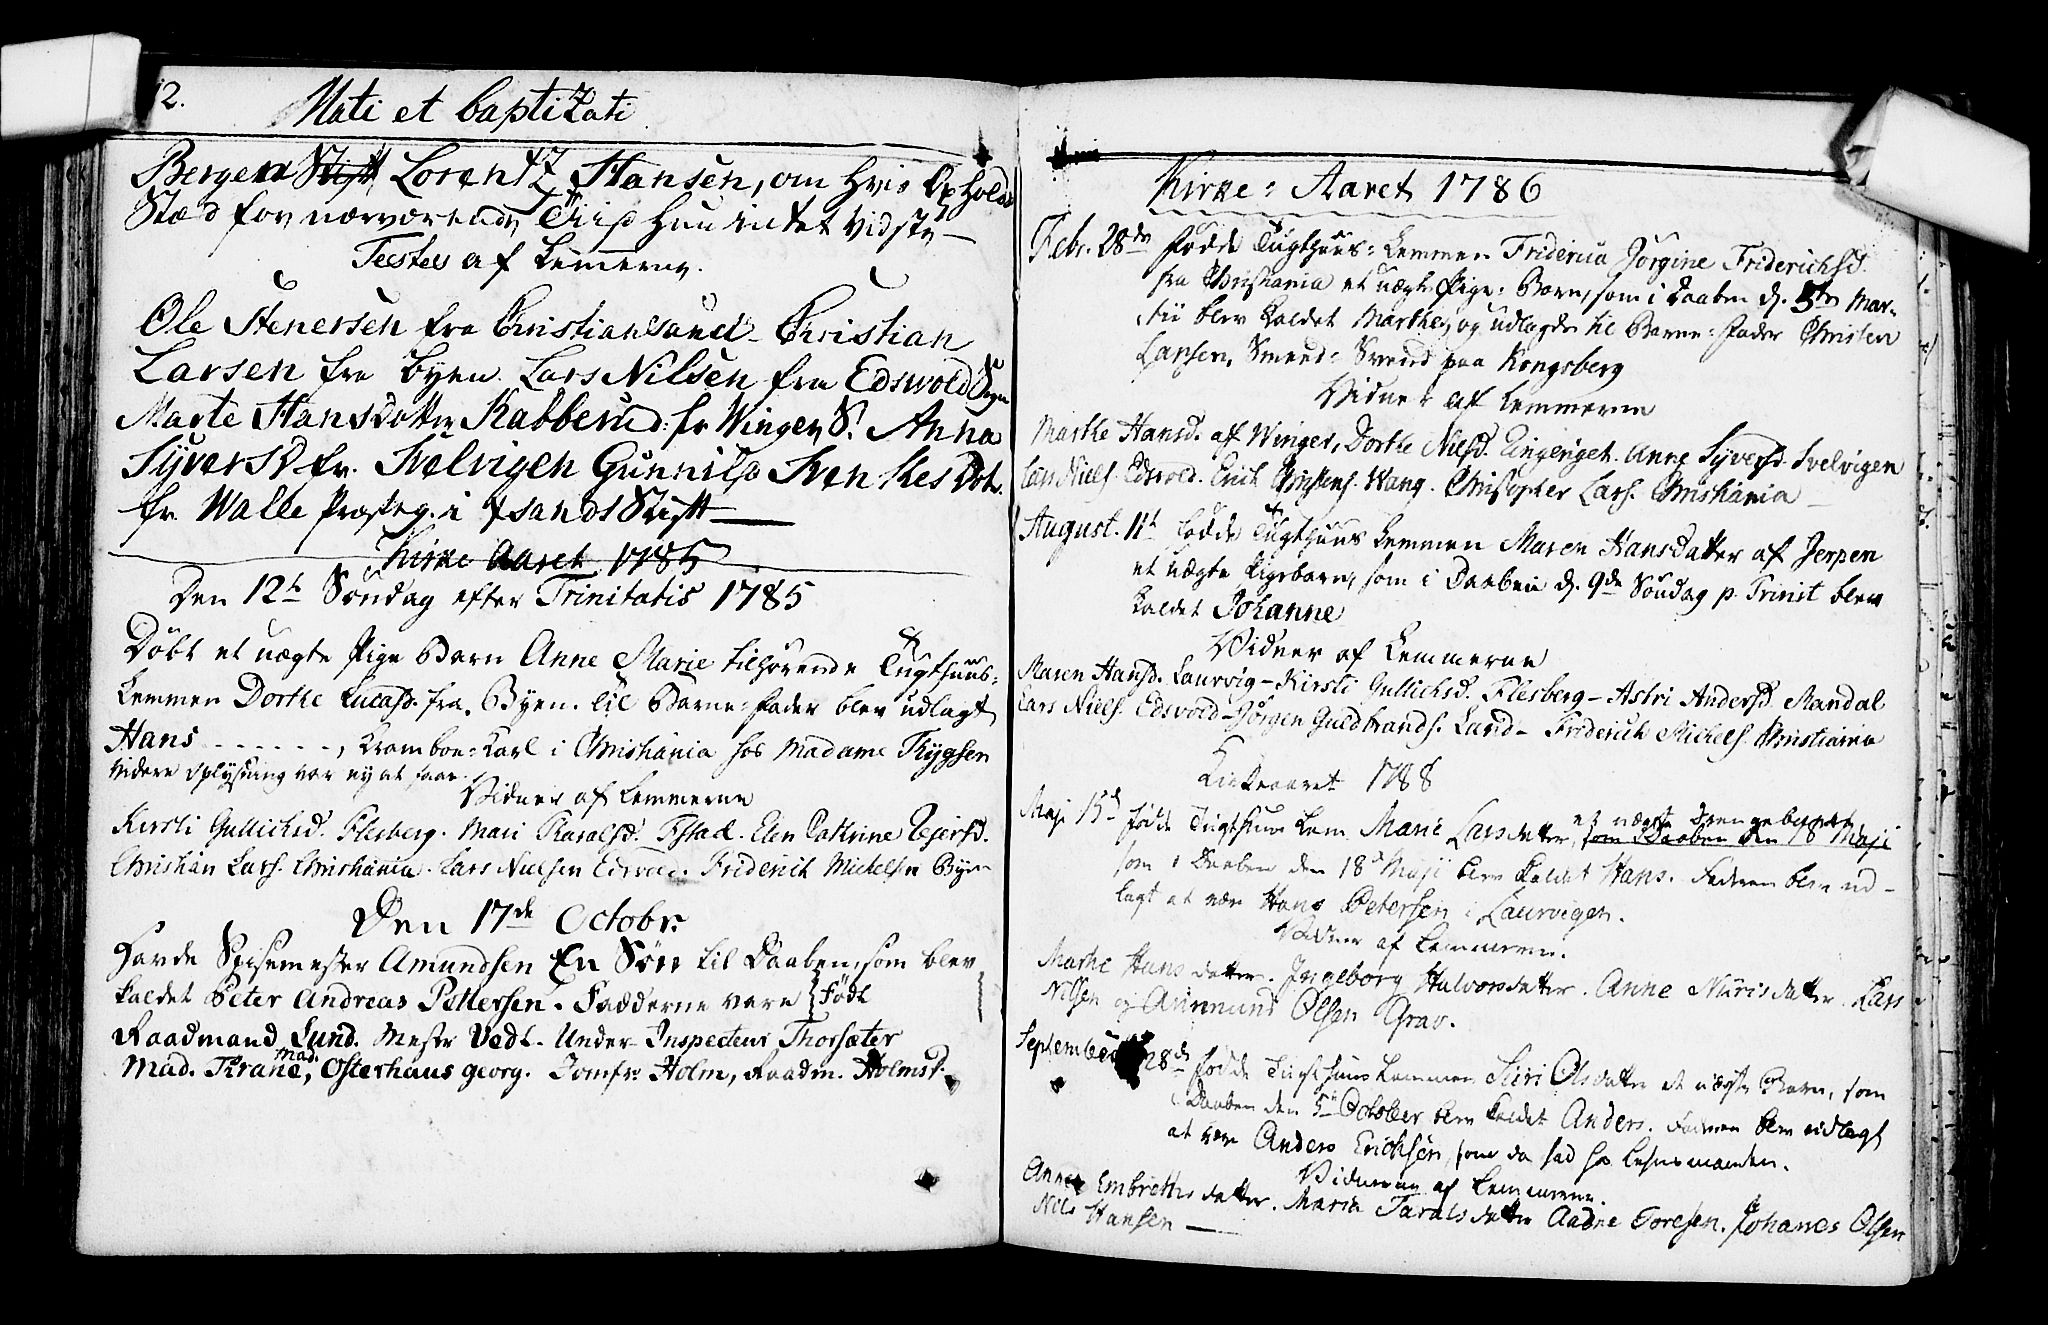 12.
Nati et baptizati
Bergen Stift Lorentz Hansen, om hvis Ophold
Stæd for nærværende Tiid hun intet vidste —
Testes af Lemerne.
Ole Stenersen fra Christiansand – Christian
Larsen fra byen. Lars Nilsen fra Edswold
Marte Hansdotter Kabberud: fr Winger S. Anna
Syversd fr. Svelvigen Gunnild Svenkesdotr.
fr. Walle Præsteg. i Xsands Stift —
Kirke Aaret 1785
Den 12te Söndag efter Trinitatis 1785
Döbt et uægte Pige Barn Anne Marie tilhørende Tugthuus-
Lemmen Dorthe Lucasd. fra Byen. til Barne-Fader blev udlagt
Hans - - - - - -, Kramboe-Karl i Christiania hos Madame Thygsen
videre oplysning var ey at faae.
Vidner af Lemmerne
Kirsti Gullichsd. Flesberg. Mari Haralsd. Elen Cathrine Tejersd.
Christian Lars. Christiania. Lars Nielsen Edsvold. Friderich Mickelsen Byen
Den 17de Octobr.
Havde Spisemester Amundsen En Sön til Daaben, som blev
kaldet Peter Andreas Pettersen. Fadderne vare Födt
Raadmand Lund. Mestr Vedt. Under-Inspecteur Thorsæter
Mad. Krane, Mad. Osterhaus georg. Jomfr. Holm, Raadm. Holmst.
Kirke-Aaret 1786
Febr. 28de födde Tugthuus-Lemmen Friderica Jörgine Friderichsd.
fra Christiania et uægte Pige-Barn, som i Daaben d. 5te Mar-
tii blev kaldet Marthe, og udlagde til Barne-Fader Christen
Larsen, Smeed-Svend paa Kongsberg
Vidner af Lemmerne
Marthe Hansd. af Winger, Dorthe Nielsd. Ringeriget. Anne Syversd. Svelvigen
Lars Niels. Edsvold. Erich Christens. Wang. Christopher Lars. Christiania —
August. 11te födde Tugthuus Lemmen Maren Hansdatter af Jerpen
et uægte Pigebarn, som i Daaben d. 9de Söndag p. Trinit blev
kaldet Johanne
Vidner af Lemmerne
Maren Hansd. Laurvig – Kirsti Gullichsd. Flesberg – Astri Andersd. Mandal
Lars Niels. Edsvold – Jörgen Guldbrands. Lund – Friderich Michels. Christiania
Kirkeaaret 1788
Maji 15de födde Tugthuus Lem Marie Larsdatter, et uægte Drengebarn
som i Daaben den 18 Maji
som i Daaben den 18de Maji blev kaldet Hans. Faderen blev ud-
lagt at være Hans Petersen i Laurvigen.
Vidner af Lemmerne.
Marthe Hansdatter. Ingeborg Halvorsdatter. Anne Nürisdatter. Lars
Nilsen og Aunmund Olsen Grav.
September 28de födde Tugthuus Lemmen Siri Olsdatter et uægte Barn, som
i Daaben den 5te October blev kaldet Anders. Faderen blev udlagt
at være Anders Erichsen, som da sad hos Lehnsmanden.
Vidnerne af Lemmerne.
Anne Embrettsdatter. Maria Taralsdatter Aadne Toresen. Johanes Olsen
Nils Hansen —